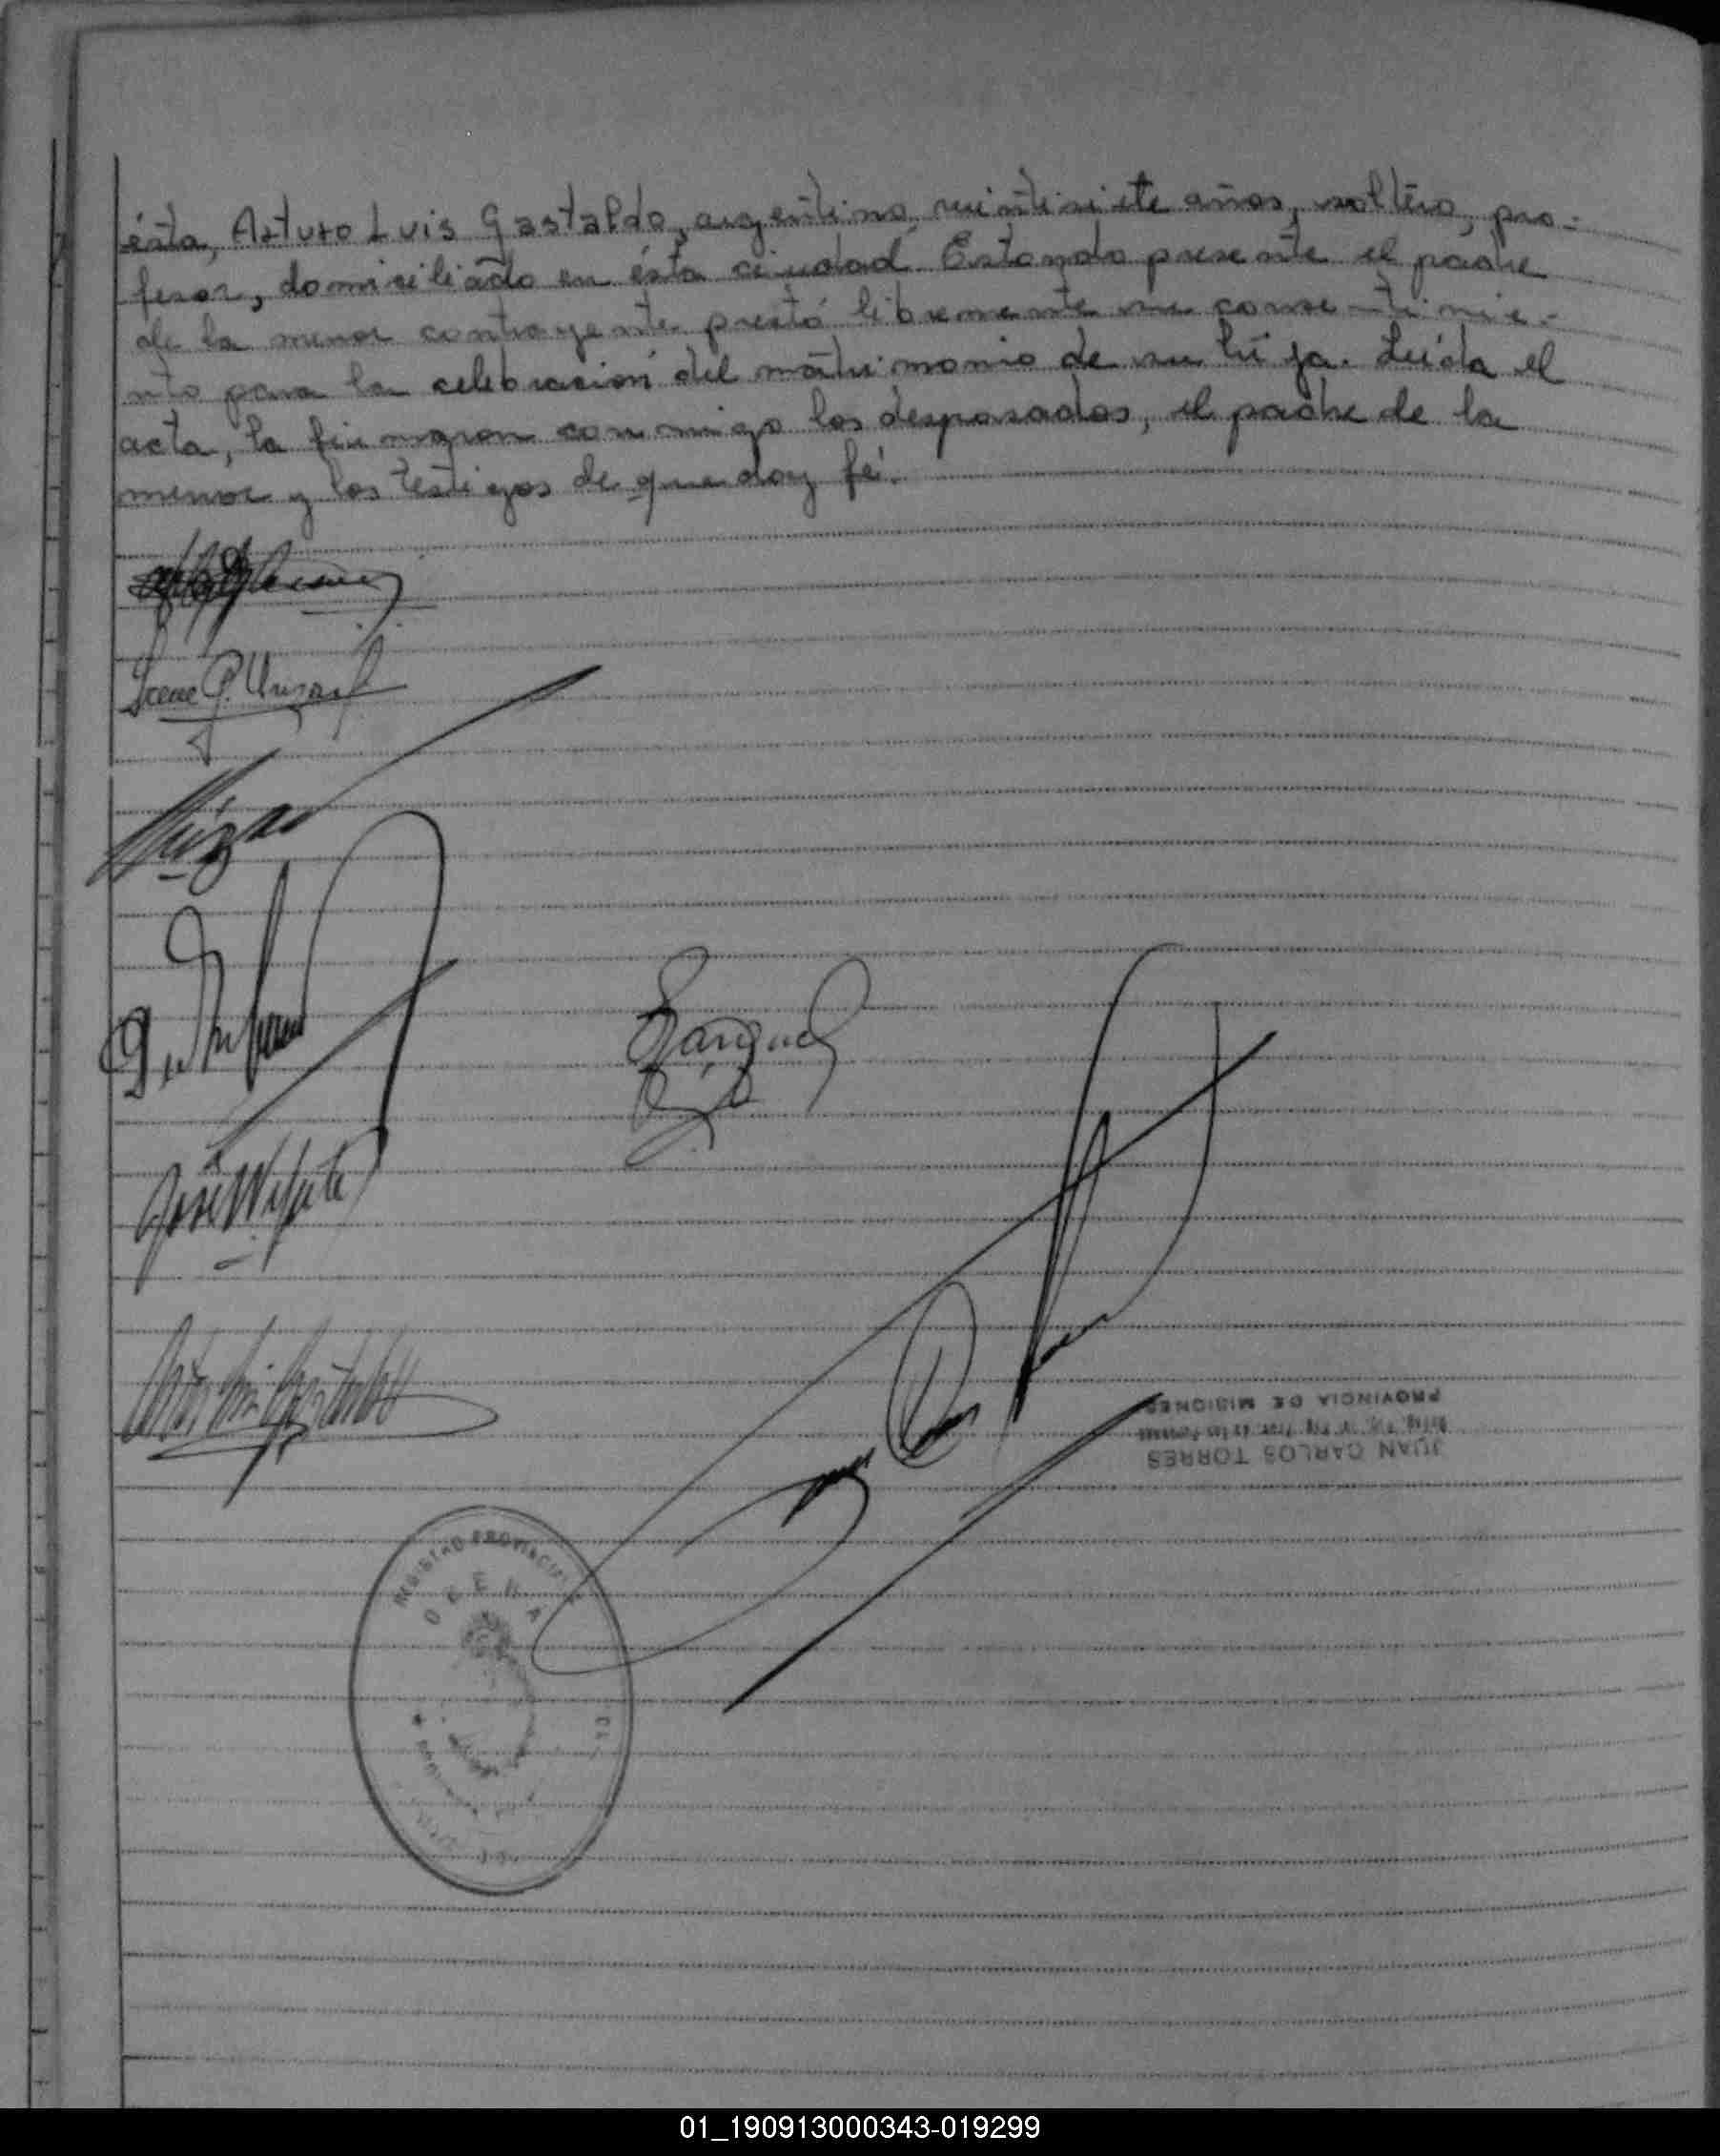 ésta, Arturo Luis Gastaldo, argentino, veintisiete años, soltero, pro-
fesor, domiciliado en ésta ciudad. Estando presente el padre
de la menor contrayente prestó libremente su consentimie-
nto para la celebración del matrimonio de su hija. Leída el
acta, la firmaron conmigo los desposados, el padre de la
menor y los testigos de que doy fé.
Irene
José
PROVINCIA DE MISIONES
JUAN CARLOS TORRES
REGISTRO PROVINCIAL
OBERA
01_190913000343-019299